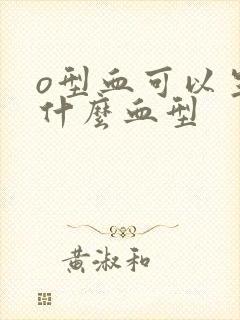 o型血可以生
什麼血型
黄淑和